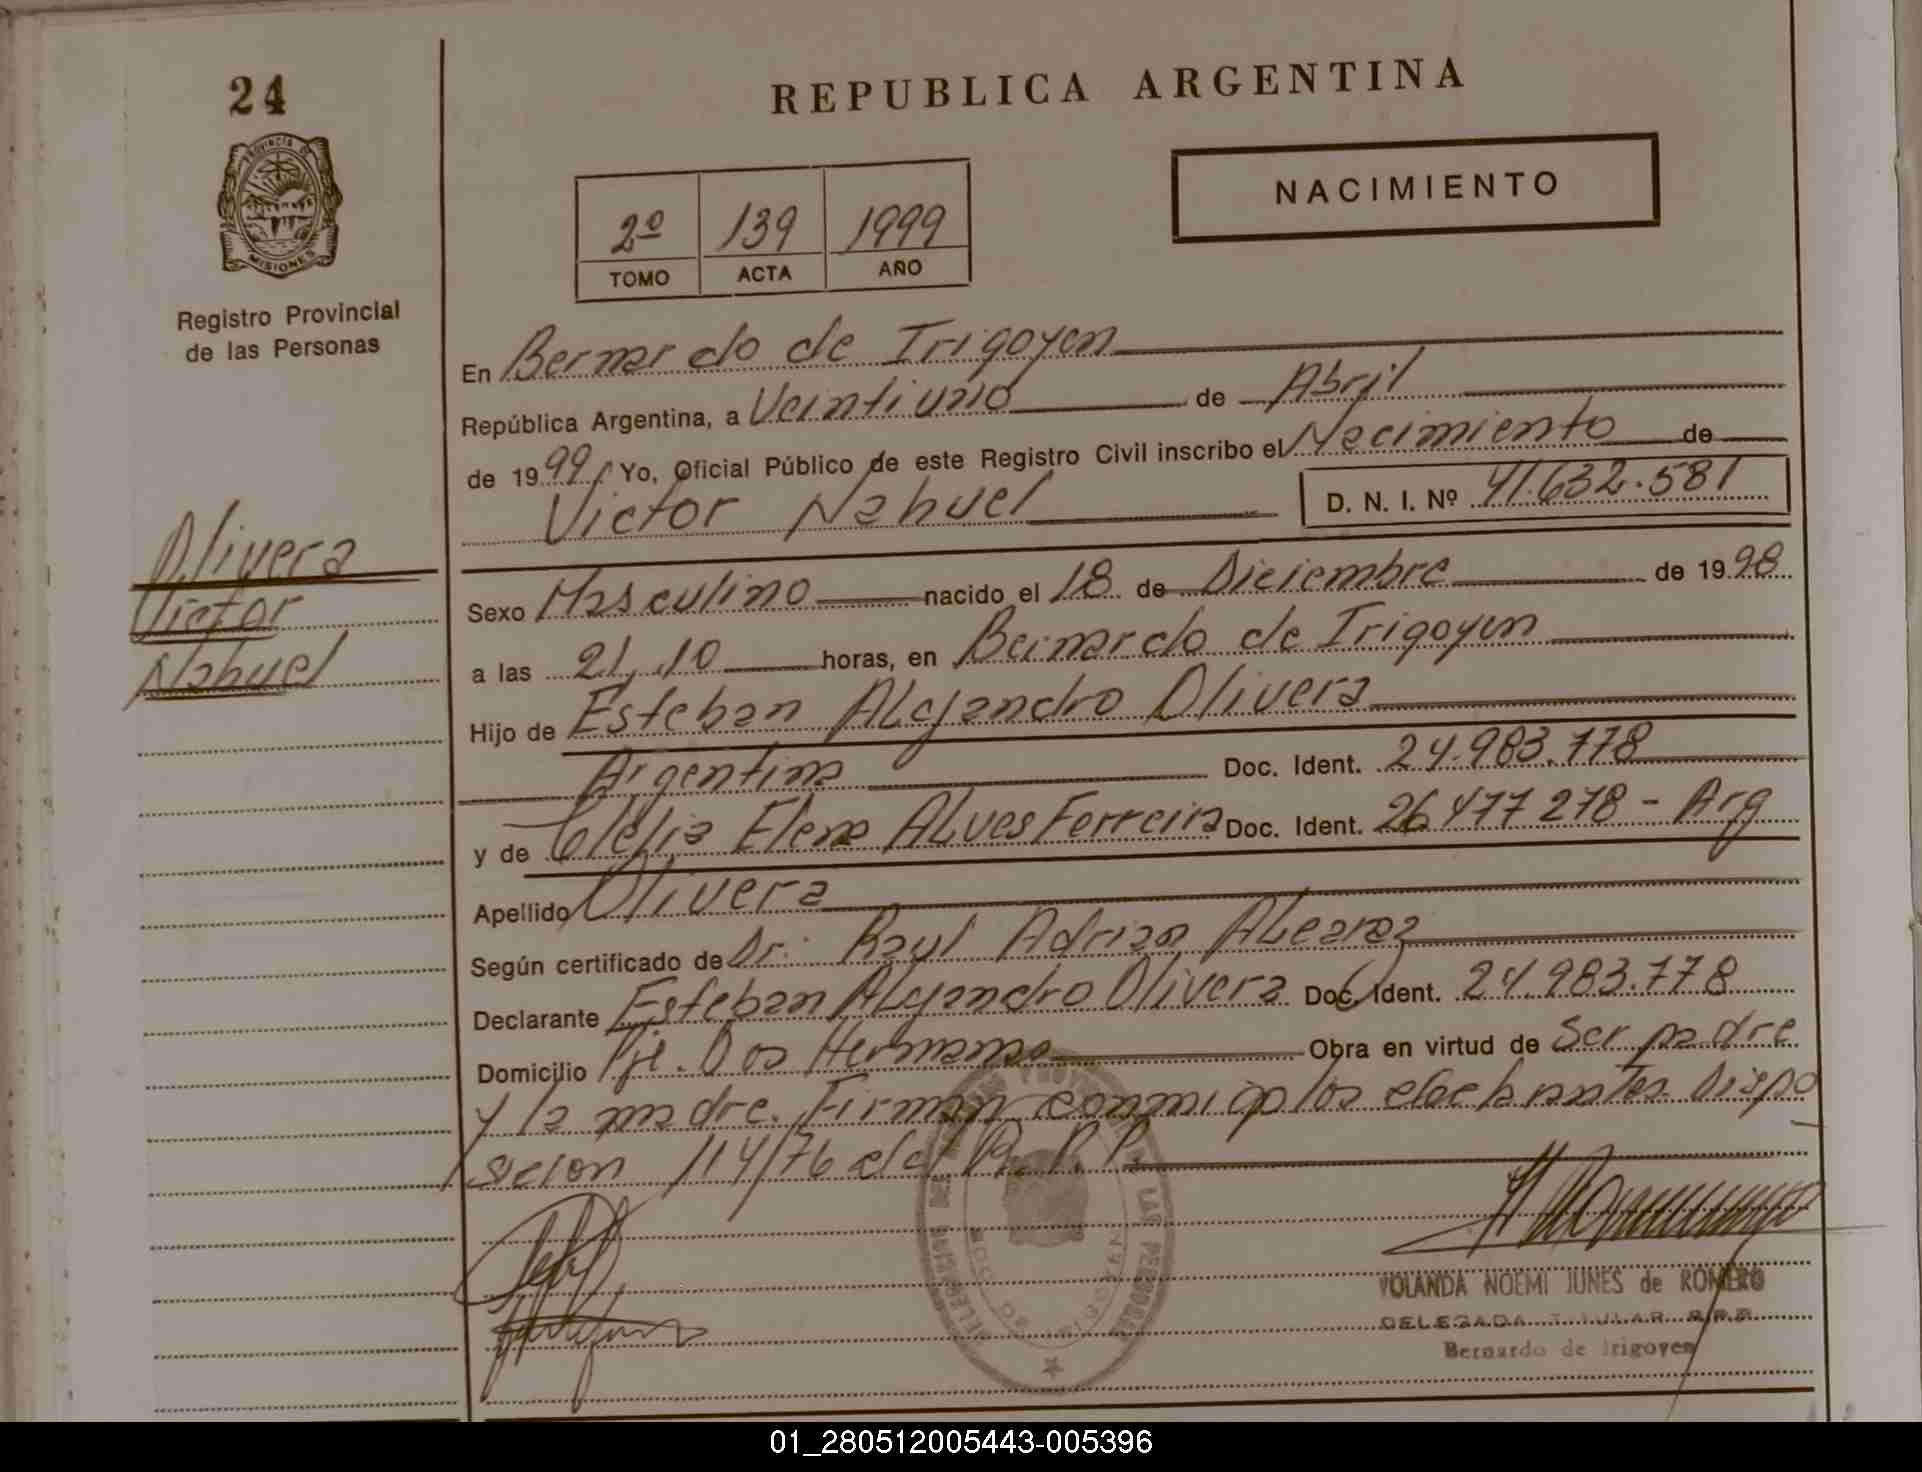 24
PROVINCIA DE
MISIONES
Registro Provincial
de las Personas
Olivera
Victor
Nahuel
REPUBLICA ARGENTINA
NACIMIENTO
2º 139 1999
TOMO ACTA AÑO
En Bernardo de Irigoyen
República Argentina, a Veintiuno de Abril
de 1999. Yo, Oficial Público de este Registro Civil inscribo el Nacimiento de
Victor Nahuel D. N. I. Nº 41.632.581
Sexo Masculino nacido el 18 de Diciembre de 1998
a las 21,10 horas, en Bernardo de Irigoyen
Hijo de Esteban Alejandro Olivera
Argentina Doc. Ident. 24.983.778
y de Clelia Elena Alves Ferreira Doc. Ident. 26 477 278 - Arg
Apellido Olivera
Según certificado de Dr. Raul Adrian
Declarante Esteban Alejandro Olivera Doc. Ident. 24.983.778
Domicilio Pje. Dos Hermanas Obra en virtud de Ser padre
y la madre. Firman conmigo los Dispo
sicion 114/76 del R. P. P.
YOLANDA NOEMI JUNES de ROMERO
DELEGADA TITULAR R.P.P.
Bernardo de Irigoyen
01_280512005443-005396